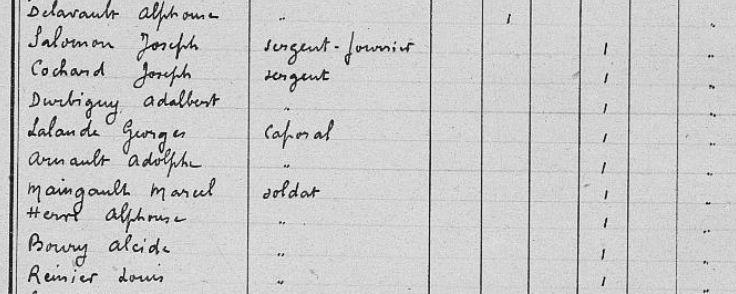 Delavault Alphonse " 1 "
Salomon Joseph sergent-fourrier 1 "
Cochard Joseph sergent 1 "
Durbiguy Adalbert " 1 "
Lalande Georges Caporal 1 "
Arnault Adolphe " 1 "
Maingault Marcel soldat 1 "
Herré Alphonse " 1 "
Boury Alcide " 1 "
Reinier Louis " 1 "